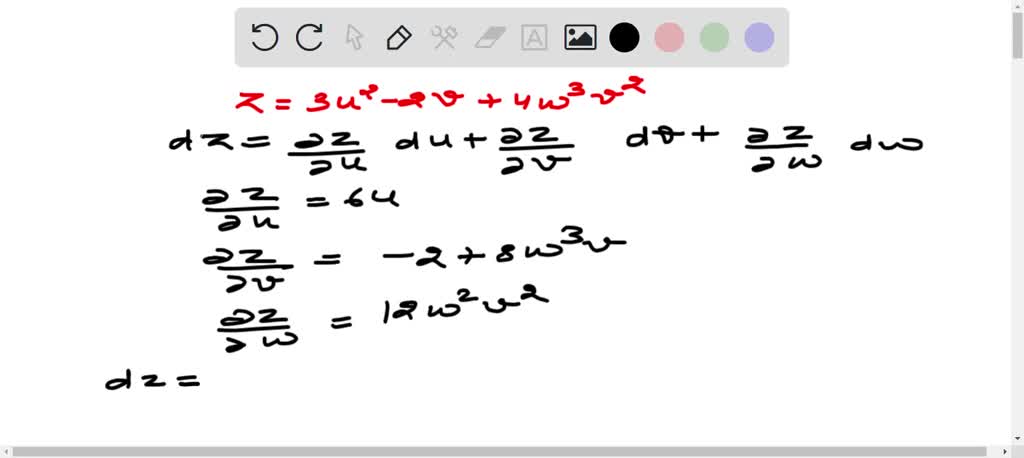 z = 3u² - 2v + 4w³v²
dz = ∂z/∂u du + ∂z/∂v dv + ∂z/∂w dw
∂z/∂u = 6u
∂z/∂v = -2 + 8w³v
∂z/∂w = 12w²v²
dz =